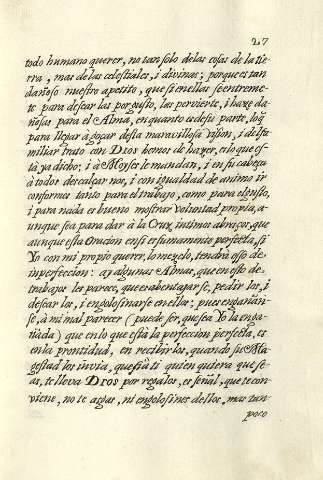 27
todo humano querer, no tan solo de las cosas de la tie
rra, mas de las celestiales, i divinas; porque es tan
dañoso nuestro apetito, que si en ellas se entreme-
te para desear las por gusto, las pervierte, i haze da-
ñosas para el Alma, en quanto es de su parte, lo q̃
para llegar à goçar desta maravillosa vnion, i del fa
miliar trato con Dios hemos de hazer, en lo que es
tà ya dicho; i à Moyses le mandan, i en su cabeça
à todos descalçar nos, i con igualdad de animo ir
conformes tanto para el trabajo, como para el gusto,
i para nada es bueno mostrar voluntad propia, a-
unque sea para dar à la Cruz intimos abraços, que
aunque esta Oracion en si es sumamente perfecta, si
Yo con mi propio querer, lo mezclo, tendrà osso de
imperfeccion: ay algunas Almas, que en esto de
trabajos les parece, que es abentajarse, pedir los, i
desear los, i engolosinarse en ellos; pues engañan-
se, à mi mal parecer (puede ser, que sea Yo la enga-
ñada) que en lo que està la perfeccion perfecta, es
en la prontidud, en recibir los, quando su Ma
gestad los invia, que si à ti quien quiera que se-
as, te lleva Dios por regalos, es señal, que te con-
viene, no te asgas, ni engolosines dellos, mas tan
poco